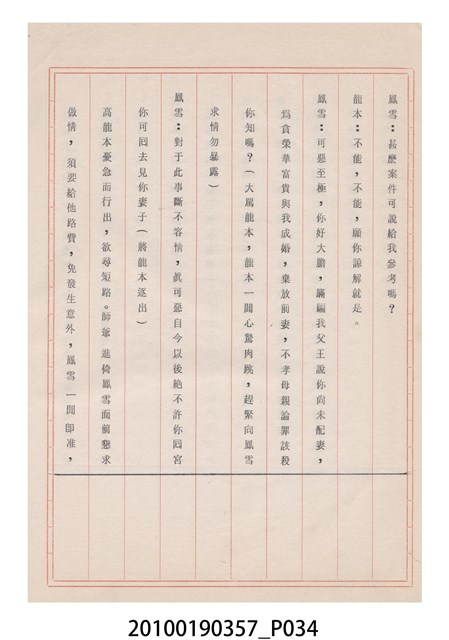 鳳雪：甚麽案件可說給我參考嗎？
龍本：不能，不能，願你諒解就是。
鳳雪：可惡至極，你好大膽，瞞騙我父王說你尚未配妻，
為貪榮華富貴與我成婚，棄放前妻，不孝母親論罪該殺
你知嗎？（大罵龍本，龍本一聞心驚肉跳，趕緊向鳳雪
求情勿暴露）
鳳雪：對于此事斷不容情，眞可惡自今以後絶不許你囘宮
你可囘去見你妻子（將龍本逐出）
高龍本憂急而行出，欲尋短路。師爺進倚鳳雪面前懇求
做情，須要給他路費，免發生意外，鳳雪一聞卽准，
20100190357_P034